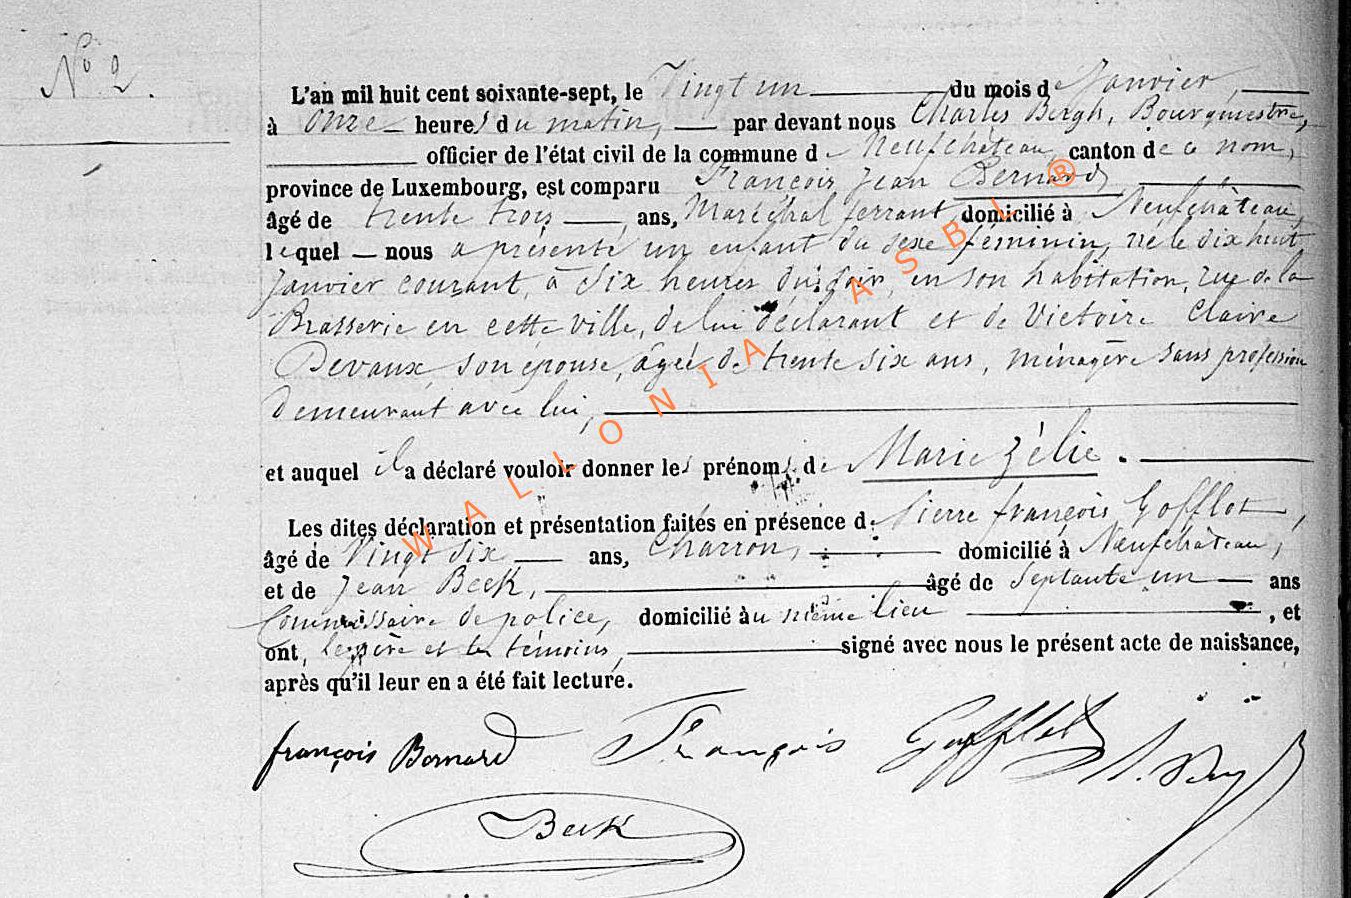 N° 2.
L'an mil huit cent soixante-sept, le Vingt un du mois de Janvier,
à Onze heures du matin, par devant nous Charles Bergh, Bourgmestre,
officier de l'état civil de la commune de Neufchâteau, canton de ce nom,
province de Luxembourg, est comparu François Jean Bernard
âgé de trente trois ans, Maréchal ferrant, domicilié à Neufchâteau,
lequel nous a présenté un enfant du sexe féminin, né le dix huit
Janvier courant, à six heures du soir, en son habitation, rue de la
Brasserie en cette ville, de lui déclarant et de Victoire Claire
Devaux, son épouse, âgée de trente six ans, ménagère sans profession
demeurant avec lui,
et auquel il a déclaré vouloir donner les prénoms de Marie Zélie.
Les dites déclaration et présentation faites en présence de Pierre françois Gofflot,
âgé de Vingt six ans, Charron, domicilié à Neufchâteau,
et de Jean Beck, âgé de septante un ans
Commissaire de police, domicilié au même lieu, et
ont, le père et les témoins, signé avec nous le présent acte de naissance,
après qu'il leur en a été fait lecture.
françois Bernard François Gofflot
Beck
WALLONIA ASBL ®